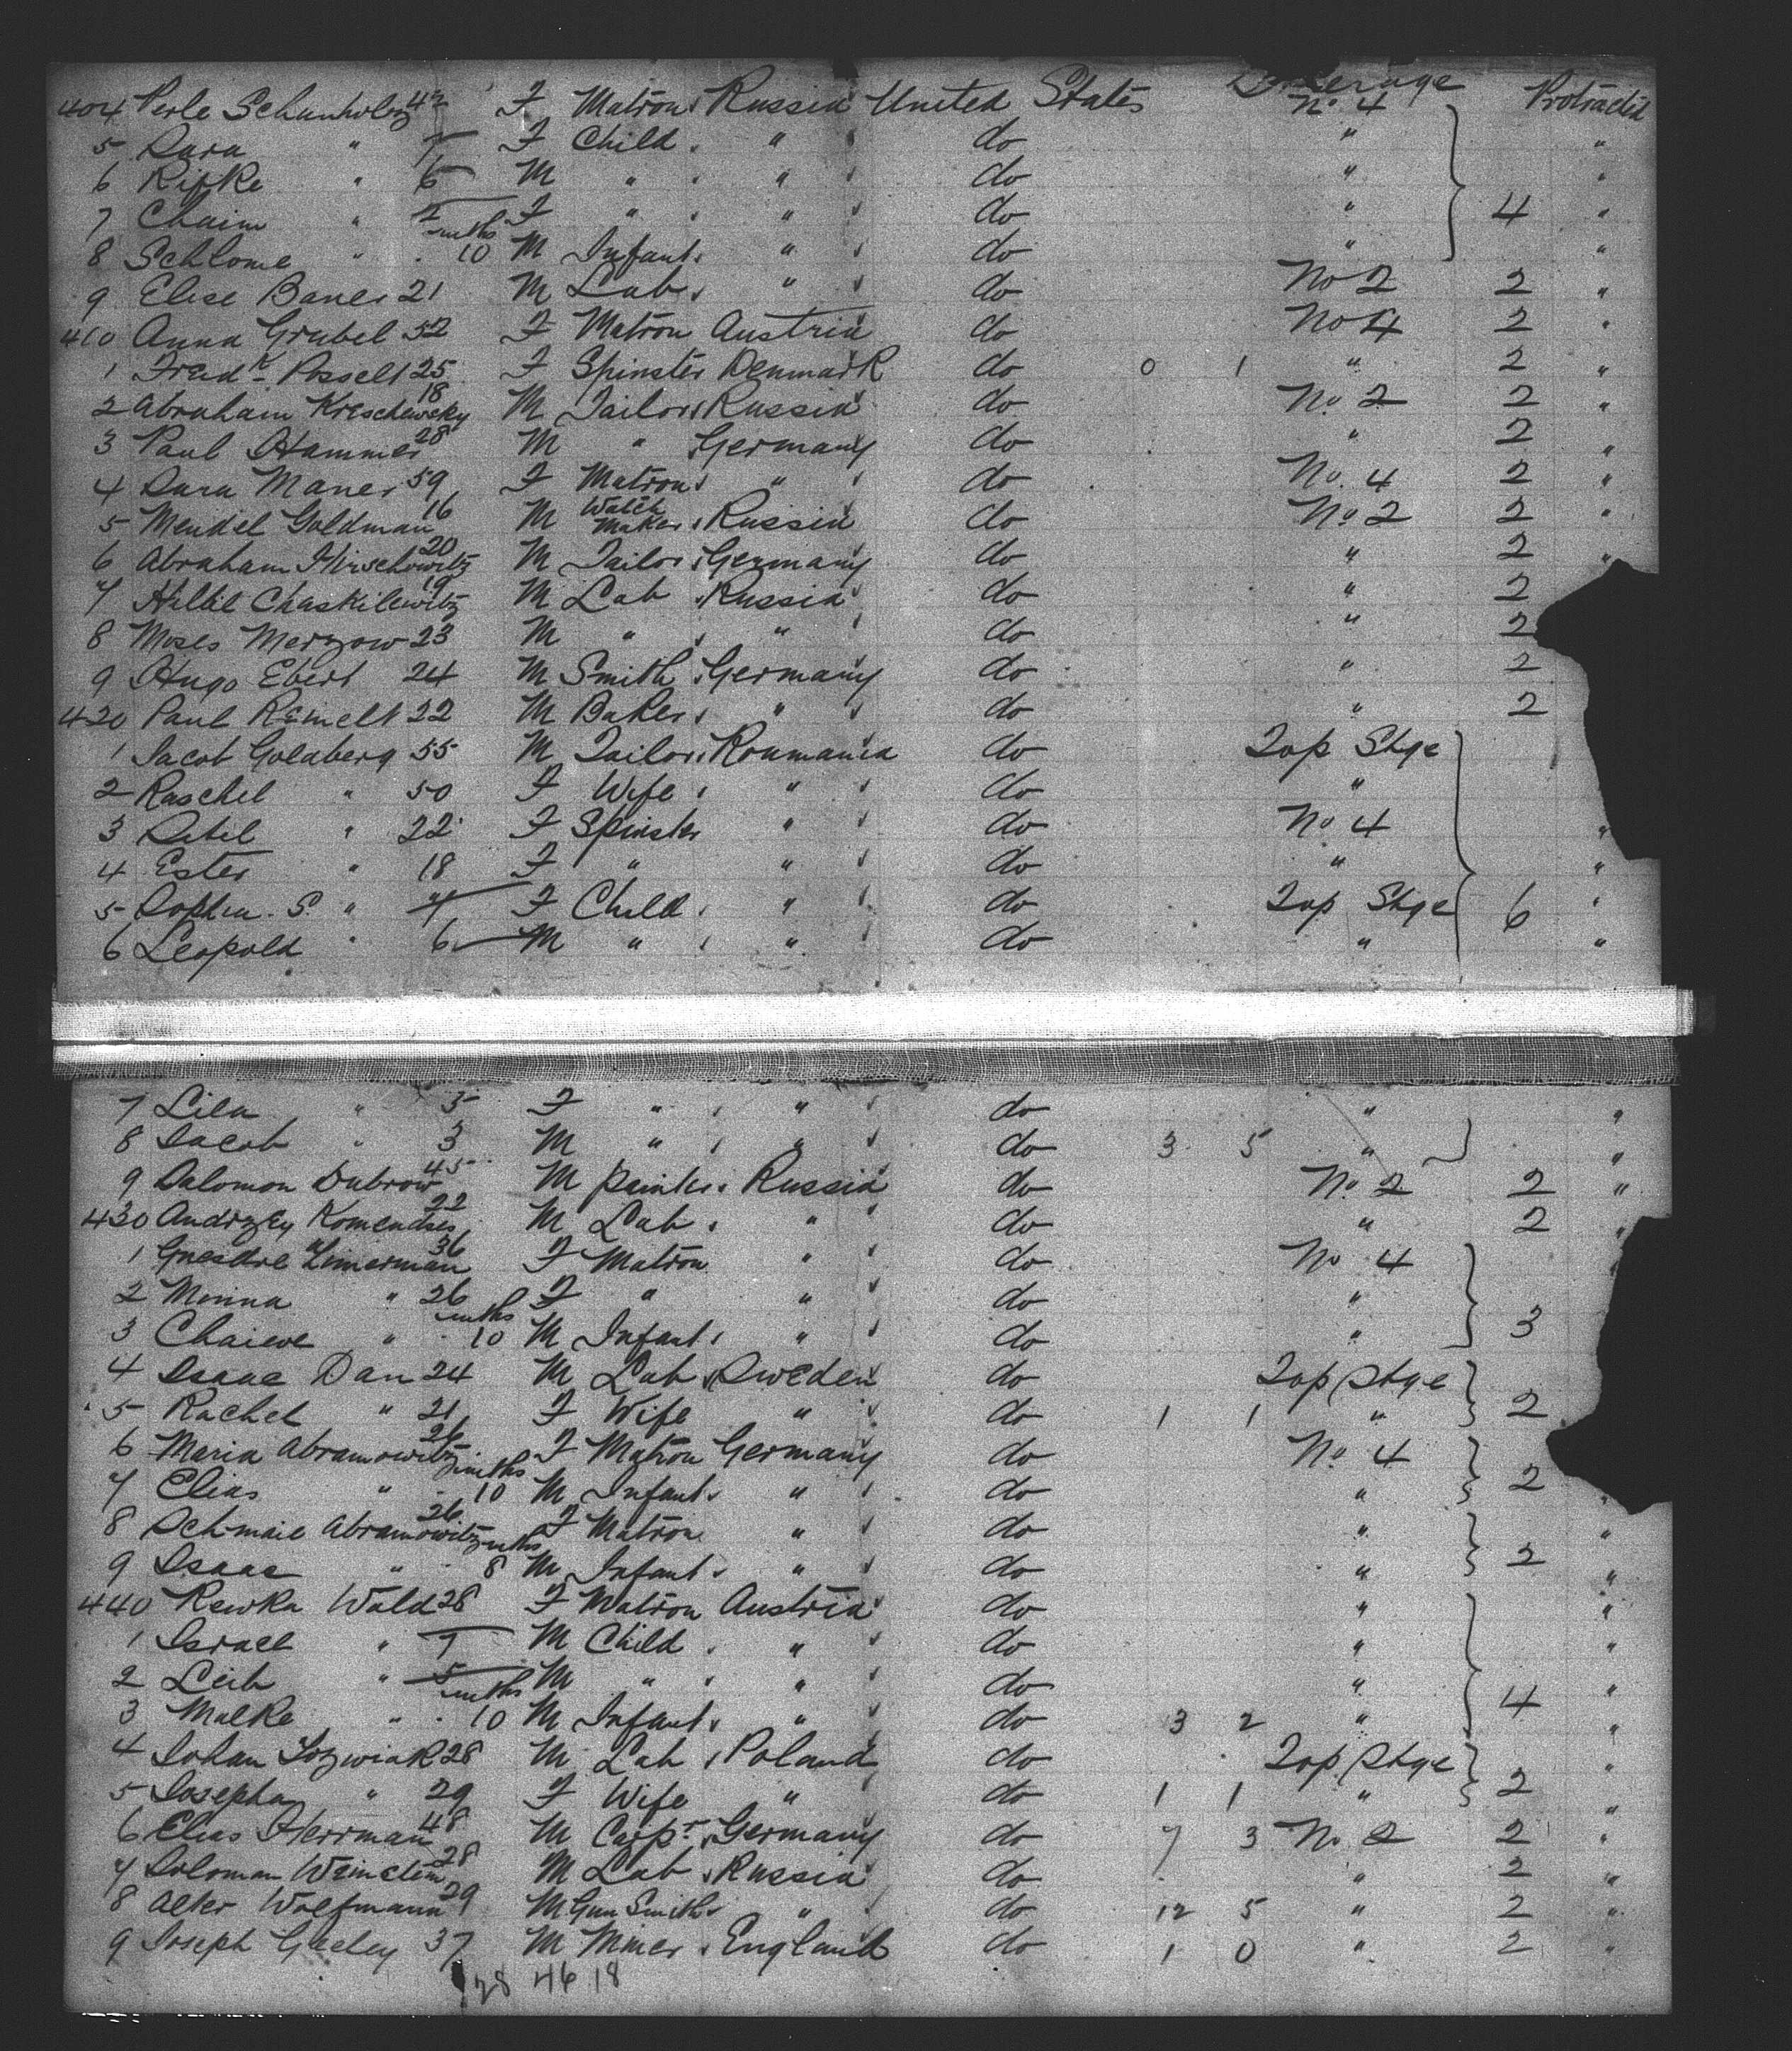 Steerage
404 Perle Schanholz 42 F Matron Russia United States No 4 Protracted
5 Sara " 7 F Child " do " "
6 Rifke " 6 M " " do " "
7 Chaim " 2 F " " do " 4 "
8 Schlome " mths 10 M Infant " do " "
9 Elise Baner 21 M Lab " do No 2 2 "
410 Anna Grubel 52 F Matron Austria do No 4 2 "
1 Fredk Posselt 25 F Spinster Denmark do 0 1 " 2 "
2 Abraham Kreschewsky 18 M Tailor Russia do No 2 2 "
3 Paul Hammer 28 M " Germany do " 2 "
4 Sara Maner 59 F Matron " do No. 4 2 "
5 Mendel Goldman 16 M Watch Maker Russia do No 2 2 "
6 Abraham Hirschowitz 20 M Tailor Germany do " 2 "
7 Hillel Chaskilewitz 19 M Lab Russia do " 2
8 Moses Merzow 23 M " " do " 2
9 Hugo Ebert 24 M Smith Germany do " 2
420 Paul Remelt 22 M Baker " do " 2
1 Jacob Goldberg 55 M Tailor Roumania do Top Stge
2 Raschel " 50 F Wife " do "
3 Rebel " 22 F Spinster " do No 4 "
4 Ester " 18 F " " do " "
5 Sophia. S. " 7 F Child " do Top Stge 6 "
6 Leopold " 6 M " " do " "
7 Lila " 5 F " " do " "
8 Jacob " 3 M " " do 3 5 " "
9 Salomon Dubrow 45 M painter Russia do No 2 2 "
430 Andrzey Komendses 22 M Lab " do " 2 "
1 Gnesdre Zimerman 36 F Matron " do No 4
2 Minna " 26 F " " do "
3 Chaiewe " mths 10 M Infant " do " 3
4 Isaac Dan 24 M Lab Sweden do Top Stge
5 Rachel " 21 F Wife " do 1 1 " 2
6 Maria Abramowitz 26 F Matron Germany do No 4
7 Elias " mths 10 M Infant " do " 2 "
8 Schmaie Abramowitz 26 F Matron " do " "
9 Isaac " mths 8 M Infant " do " 2 "
440 Rewka Wald 28 F Matron Austria do " "
1 Israel " 7 M Child " do " "
2 Leib " 5 M " " do " "
3 Malke " mths 10 M Infant " do 3 2 " 4 "
4 Johan Jozwiak 28 M Lab Poland do Top Stge "
5 Josepha " 29 F Wife " do 1 1 " 2 "
6 Elias Herrman 48 M Carpr Germany do 7 3 No 2 2 "
7 Soloman Weinstein 28 M Lab Russia do " 2 "
8 Alter Wolfmann 29 M Gun Smith " do 12 5 " 2 "
9 Joseph Greeley 37 M Miner England do 1 0 " 2 "
128 46 18